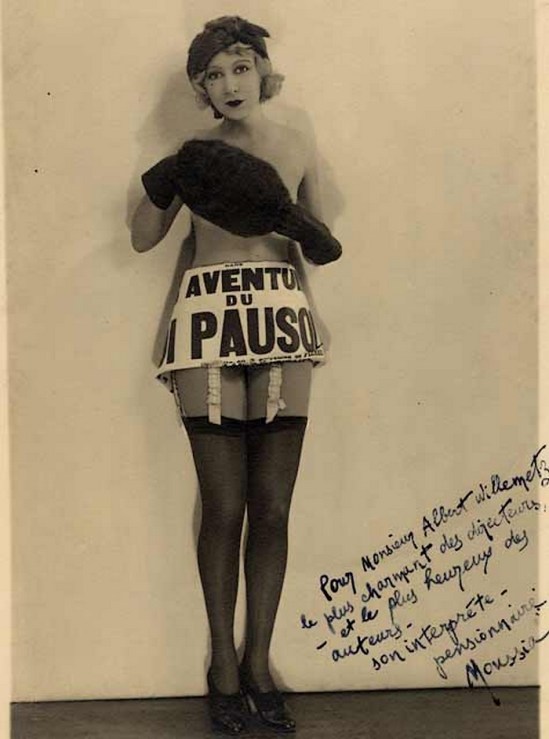 AVENTU
DU
I PAUSO
Pour Monsieur Albert Willemetz
le plus charmant des directeurs
- et le plus heureux des
auteurs -
son interprète -
pensionnaire
Moussia